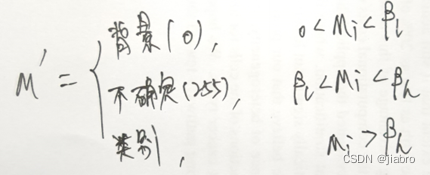 背景(0), 0 < Mi < βl
M' = { 不确定(255), βl < Mi < βh
类别, Mi > βh
CSDN @jiabro